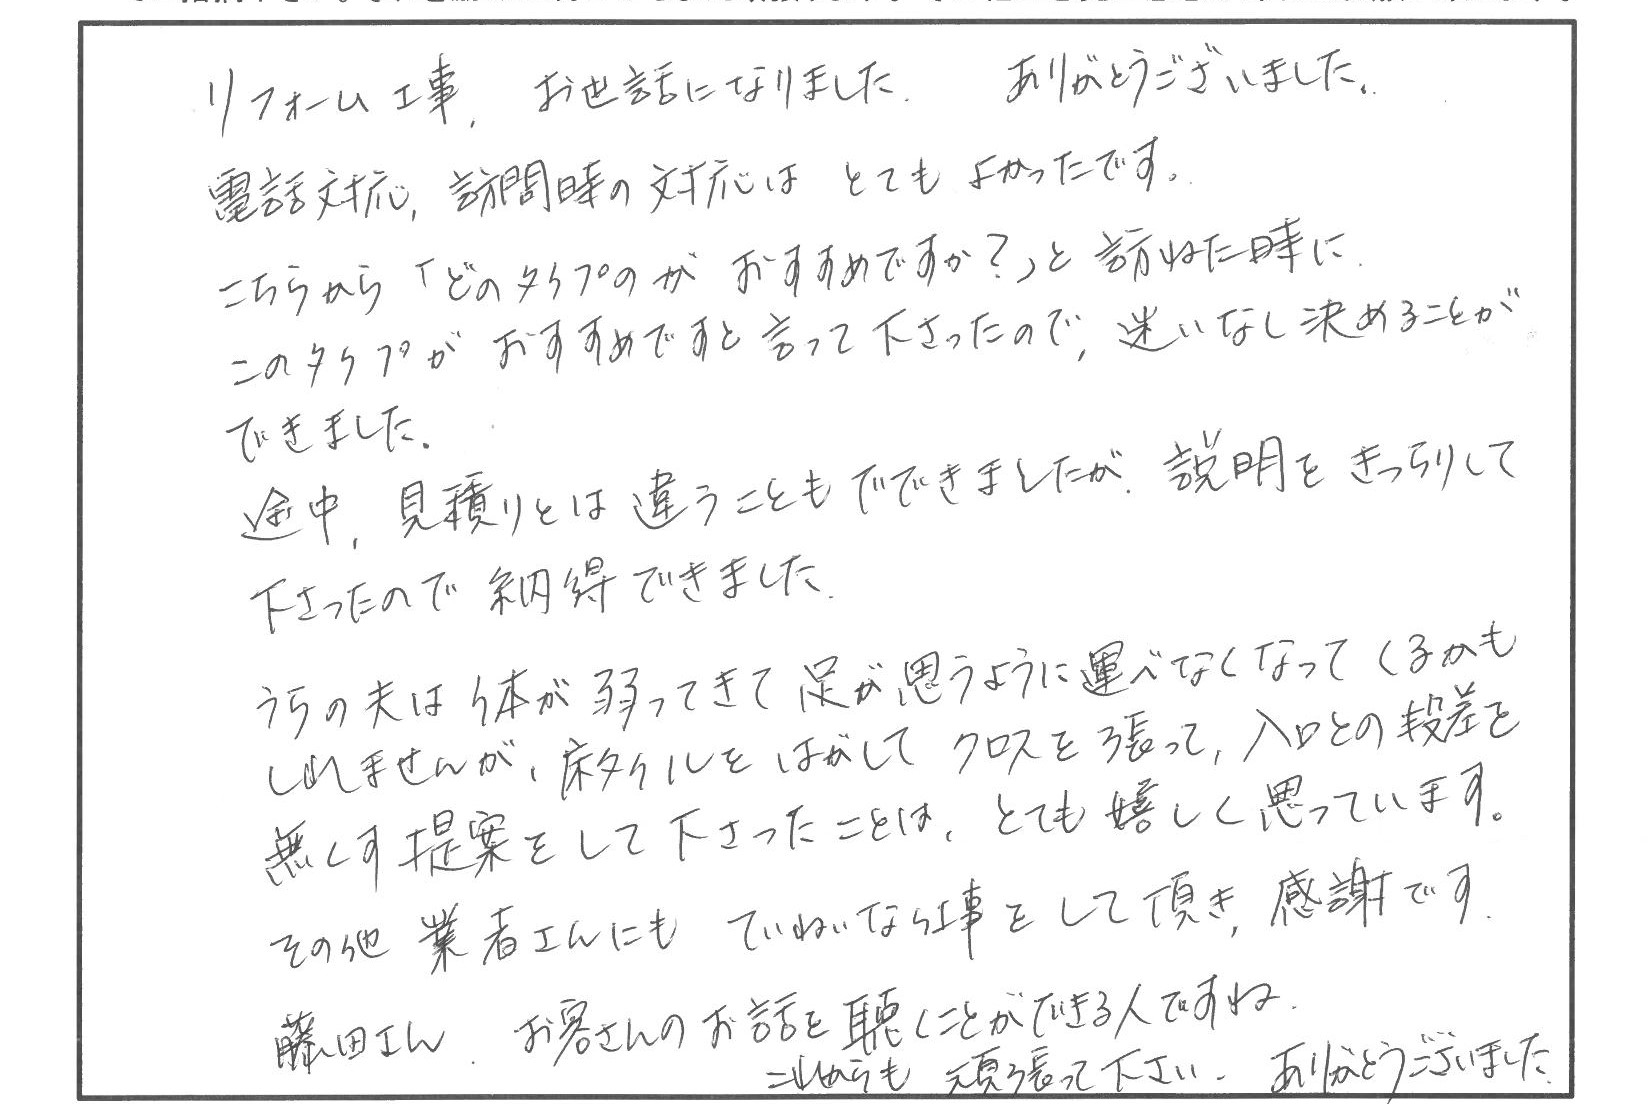 リフォーム工事、お世話になりました。 ありがとうございました。
電話対応、訪問時の対応は とても よかったです。
こちらから「どのタイプのが おすすめですか?」と 訪ねた時に
このタイプが おすすめですと言って下さったので、迷いなし決めることが
できました。
途中、見積りとは違うこともでできましたが、説明をきっちりして
下さったので納得できました。
うちの夫は体が弱ってきて足が思うように運べなくなってくるかも
しれませんが、床タイルをはがしてクロスを張って、入口との段差を
無くす提案をして下さったことは、とても嬉しく思っています。
その他 業者さんにも ていねいな仕事をして頂き、感謝です。
藤田さん、お客さんのお話を聴くことができる人ですね。
これからも 頑張って下さい。 ありがとうございました。